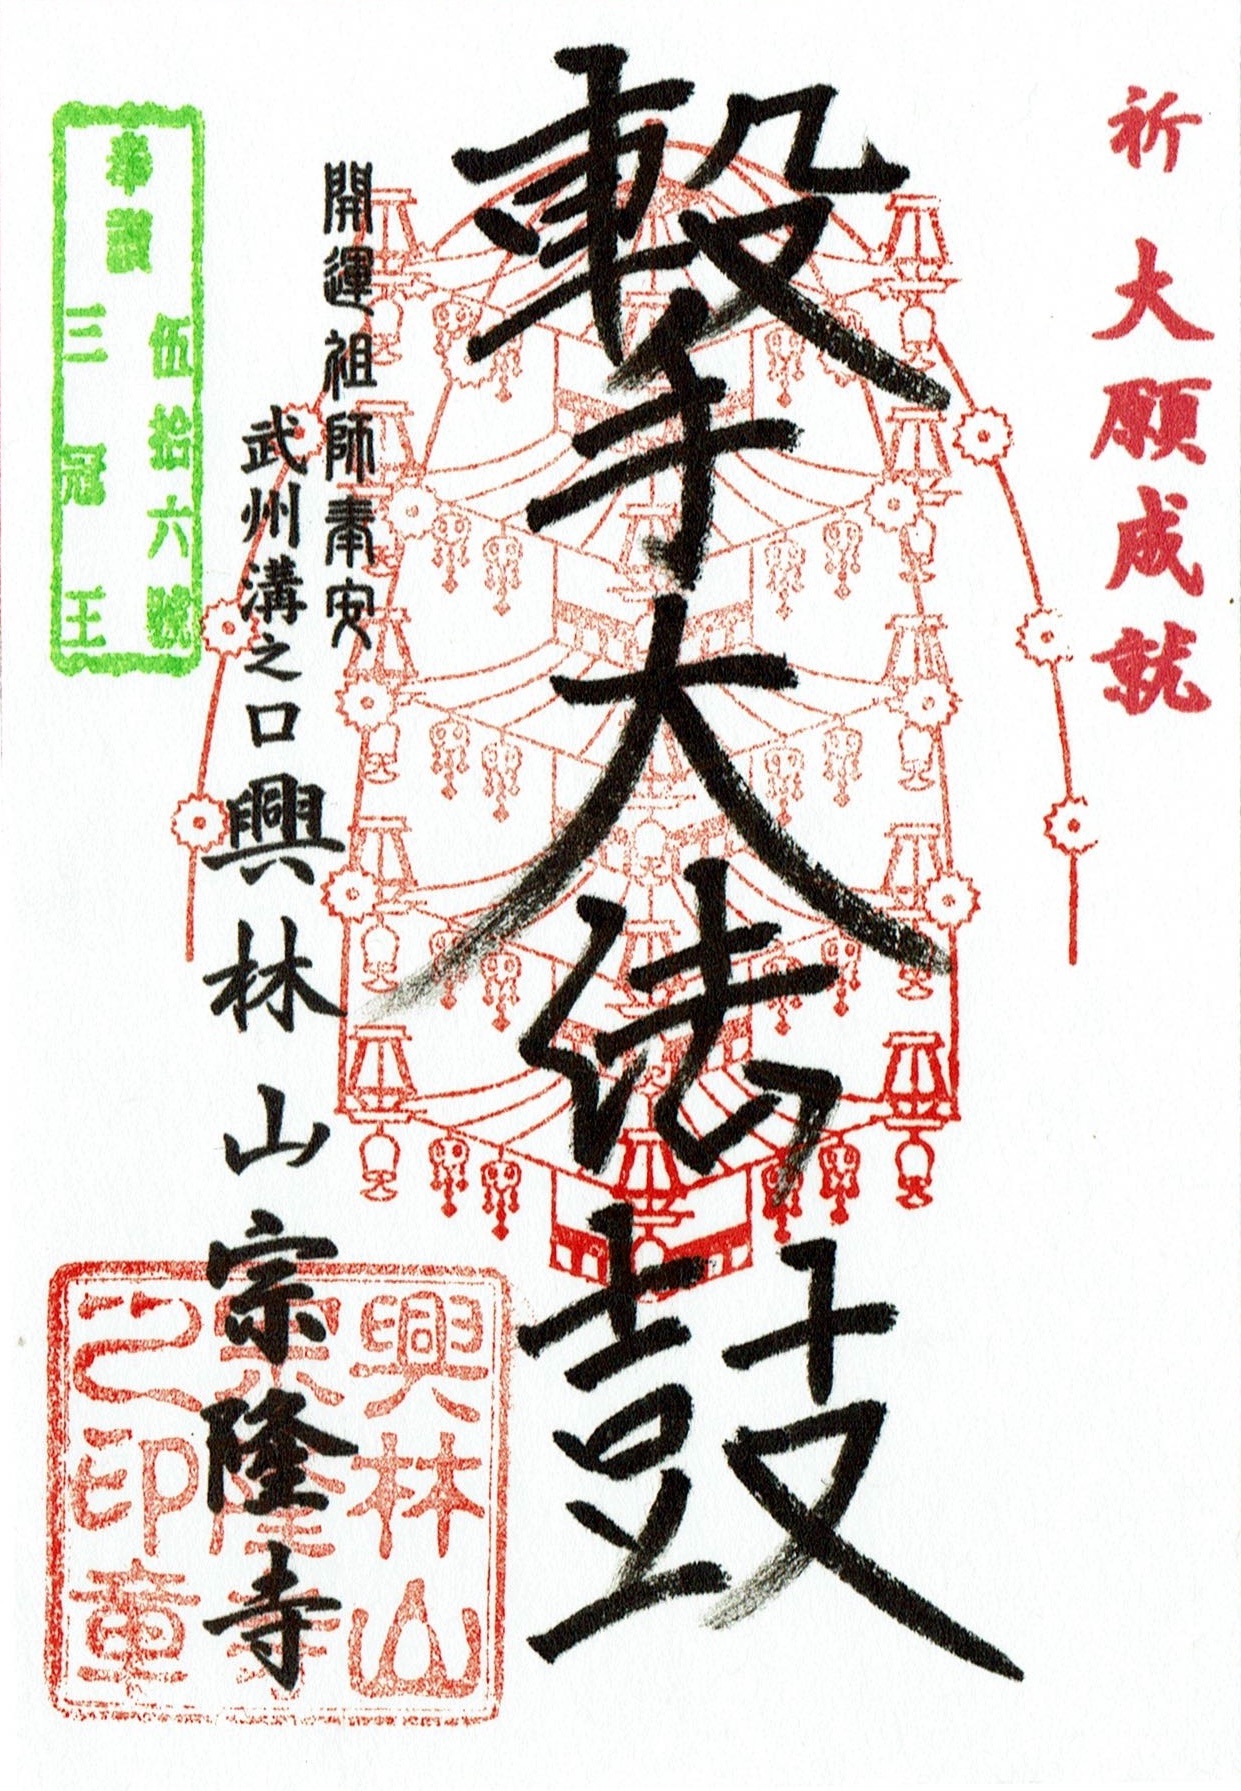 祈 大願成就
擊大法鼓
開運祖師奉安
武州溝之口興林山宗隆寺
伍拾六號
三冠王
興林山
宗隆寺
之印章